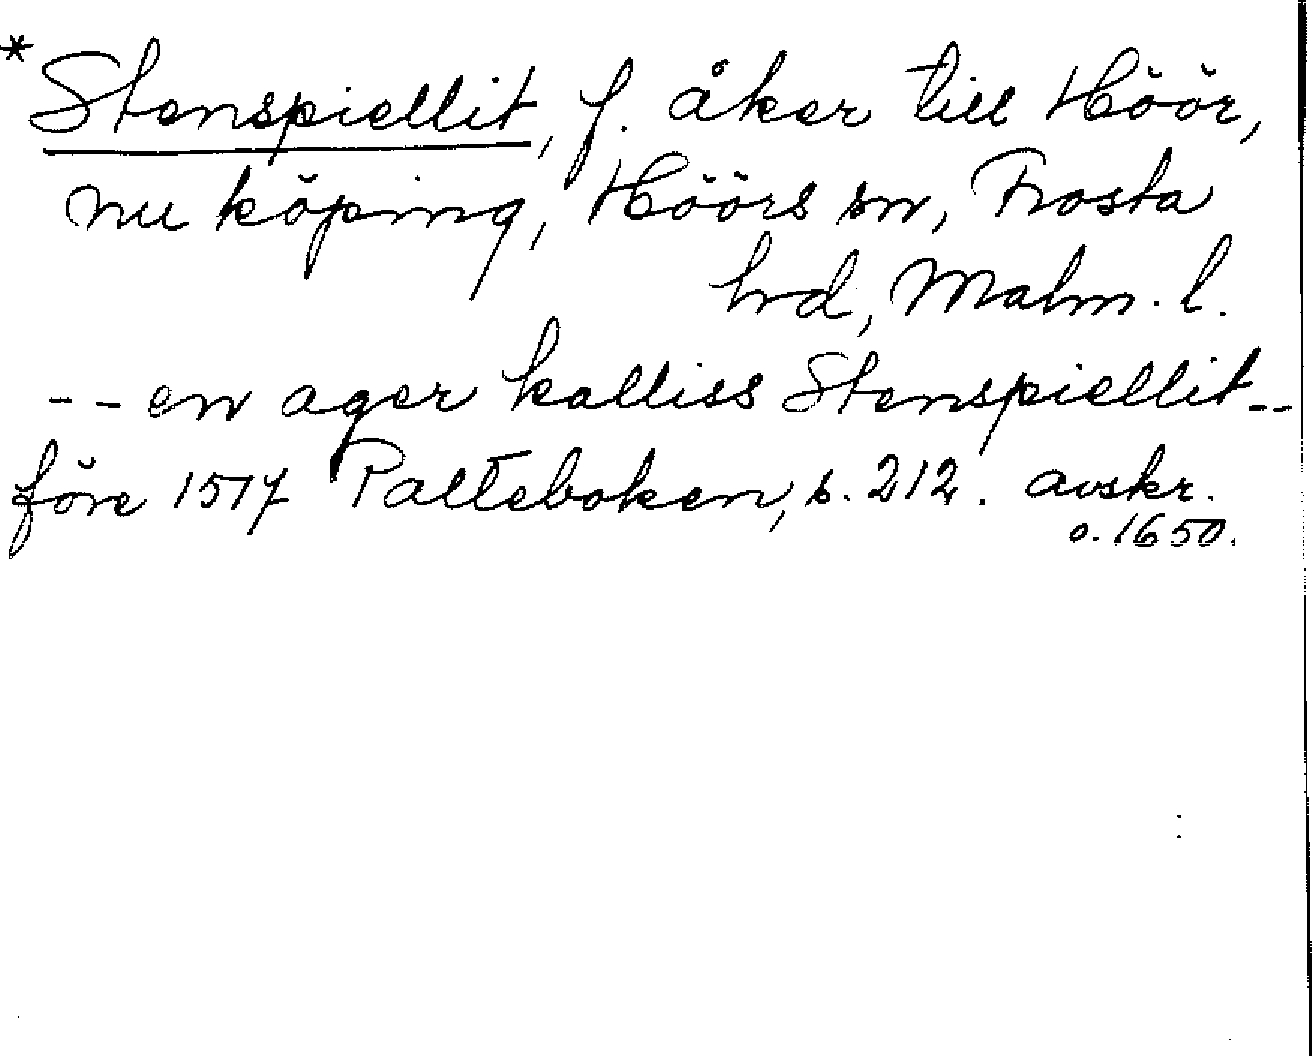 * Stenspiellit, f. åker till Höör,
nu köping, Höörs sn, Frosta
hrd, Malm. l.
-- en ager kalliss Stenspiellit --
före 1517 Palteboken, s. 212. avskr.
o. 1650.